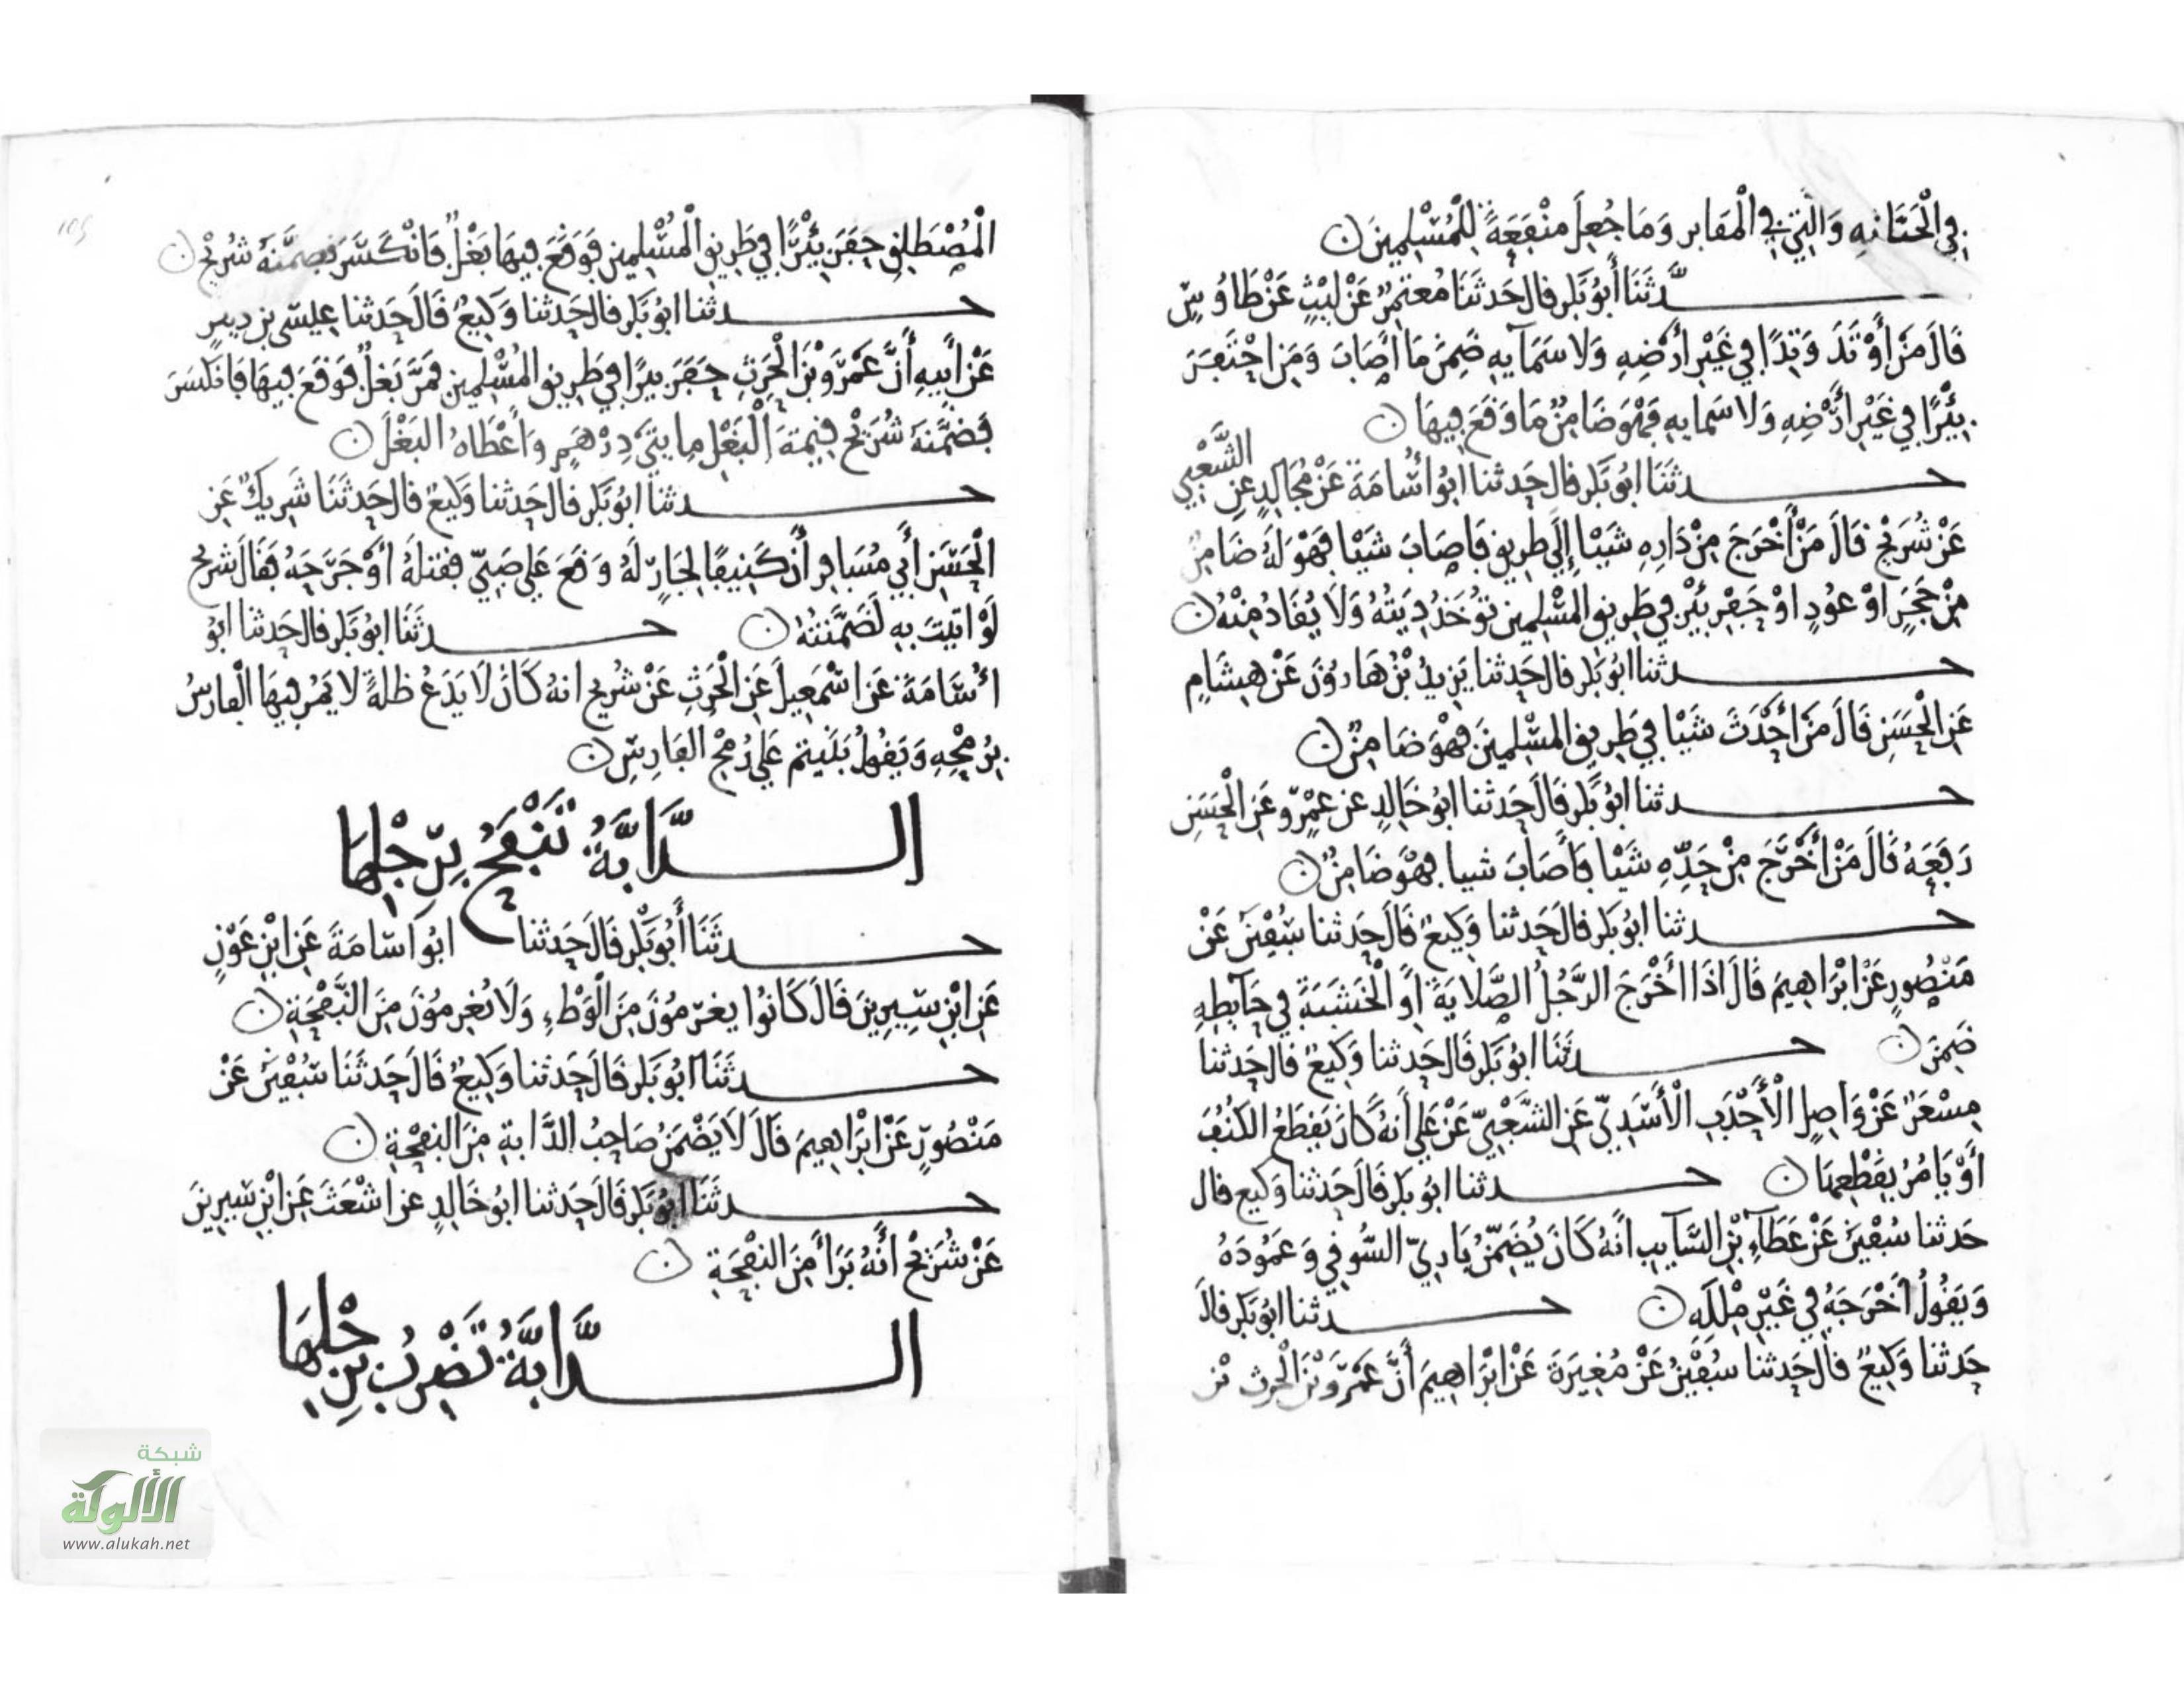 في الْجَبَّانَةِ وَالَّتِي فِي الْمَقَابِر وَمَا جُعِلَ مَنْفَعَةً لِلْمُسْلِمِينَ ن
حـــدَّثَنَا أَبُو بَكر قال حَدثَنَا مُعتمِرٌ عَنْ لَيْثٍ عَنْ طَاوُسٍ
قَالَ مَنْ أَوْتَدَ وَتِدًا فِي غَيْرِ أَرْضِهِ وَلا سَمَآيِهِ ضَمِنَ مَا أَصَابَ وَمَنِ احْتَفَرَ
بِئْرًا فِي غَيْرِ أَرْضِهِ وَلا سَمَايِهِ فَهْوَ ضَامِنٌ مَا وَقَعَ فِيهَا ن
حـــدثَنَا ابُو بَكر قال حَدثنا ابُو اُسَامَةَ عَنْ مُجَالِدٍ عَنِ الشَّعْبِي
عَنْ شُرَيْحٍ قَالَ مَنْ أَخْرَجَ مِنْ دَارِهِ شَيْا إِلَى طَرِيقٍ فَاصَابَ شَيْا فَهْوَ لَهُ ضَامِنٌ
مِنْ حَجَرٍ اوْ عُودٍ اوْ حَفْرِ بئْرٍ فِي طَرِيقِ المسْلِمِين تُوْخَذُ دِيَتُهُ وَلَا يُقَادُ مِنْهُ ن
حـــدثنا ابُو بَكر قال حَدثنا يَزِيدُ بْنُ هَارُونَ عَنْ هِشَامٍ
عَنِ الْحَسَنِ قَالَ مَنْ أَحْدَثَ شَيْا فِي طَرِيقِ المسْلِمِينَ فَهْوَ ضَامِنٌ ن
حـــدثنا ابُو بَكر قَالَ حَدثنا ابُو خَالِدٍ عن عَمْرٍو عَنِ الْحَسَنِ
رَفَعَهُ قَالَ مَنْ أَخْرَجَ مِنْ حَدِّهِ شَيْا فَأَصَابَ شيا فهْوَ ضَامِنٌ ن
حـــدثنا ابُو بَكر قال حَدثنا وَكِيعٌ قَالَ حَدثنا سُفْيٰنُ عَنْ
مَنْصُورٍ عَنْ ابْرَاهِيمَ قَالَ اذَا أَخْرَجَ الرَّجُلُ الصَّلَايَةَ أَوِ الْخَشَبَةَ فِي حَآيِطِهِ
ضَمِنَ ن حـــدثَنَا ابُو بَكر قَالَ حَدثنا وَكِيعٌ قال حَدثنا
مِسْعَرٌ عَنْ وَاصِلٍ الْأَحْدَبِ الْأَسَدِيِّ عَنِ الشَّعْبِيِّ عَنْ عَلِي أَنهُ كَانَ يَقطَعُ الكُنُفَ
أَوْ يَامُرُ بِقَطْعِهَا ن حـــدثنا ابُو بَكر قَالَ حَدثنا وَكيع قال
حَدثنا سُفْيٰنُ عَنْ عَطَآءِ بْنِ السَّآيِبِ انَّهُ كَانَ يُضَمِّنُ بَارِيَّ السُّوقِي وَعَمُودَهُ
وَيَقُولُ أَخْرَجَهُ فِي غَيْرِ مِلْكِهِ ن حـــدثنا ابُو بَكر قالَ
حَدثنا وَكِيعٌ قال حَدثنا سُفْيٰنُ عَنْ مُغِيرَةَ عَنْ ابْرَاهِيمَ أَنَّ عَمْرَو بْنَ الْحٰرِثِ بْنِ
الْمُصْطَلِقِ حَفَرَ بِئْرًا فِي طَرِيقِ الْمُسْلِمِينِ فَوَقَعَ فِيهَا بَغْلٌ فَانْكَسَرَ فضَمَّنَهُ شُرَيْحٌ ن
حـــدثنا ابُو بَكر قال حَدثنا وَكِيعٌ قَالَ حَدثنا عِيسَى بن دِينَرٍ
عَنْ ابِيهِ أَنَّ عَمْرَو بْنَ الْحٰرِثِ حَفَرَ بيرًا فِي طَرِيقِ المُسْلِمِين فَمَرَّ بَغلٌ فَوَقَعَ فِيهَا فَانكَسَرَ
فَضَمَّنَهُ شُرَيْحٌ قِيمَةَ الْبَغْلِ مِايتَيْ دِرْهَمٍ وَأَعْطَاهُ البَغْلَ ن
حـــدثنا ابُو بَكر قالَ حَدثنا وَكِيعٌ قال حَدثَنَا شَرِيكٌ عَنِ
الْحَسَنِ أَبِي مُسَافِرٍ أَنَّ كَنِيفًا لِجَارٍ لَهُ وَقَعَ عَلَى صَبِيٍّ فقتلَهُ أَوْ جَرَحَهُ فَقَالَ شريح
لَوْ اتِيتُ بِهِ لَضَمَّنتُهُ ن حـــدثَنَا ابُو بَكر قال حَدثنا ابُو
اُسَامَةَ عَن اسْمٰعِيلَ عَنِ الْحٰرِثِ عَنْ شُرَيحٍ انهُ كَانَ لَا يَدَعُ ظلةً لَا يَمُر فِيهَا الْفارسُ
بِرُمْحِهِ وَيَقُولُ بَنَيتم عَلى رُمْحِ الفَارِسِ ن
الـــدَّابَّةُ تَنْفَحُ بِرِجْلِهَا
حـــدثَنَا أَبُو بَكْر قَالَ حَدثنا ابُو اُسَامَةَ عَنِ ابْنِ عَوْنٍ
عَنِ ابْنِ سِيرِينَ قَالَ كَانُوا يغرّمُونَ مِنَ الْوَطْءِ وَلَا يُغرِمُونَ مِنَ النَّفْحَةِ ن
حـــدثَنَا ابُو بَكر قَالَ حَدثنا وَكِيعٌ قَالَ حَدثَنَا سُفْيٰنُ عَنْ
مَنْصُورٍ عَنْ ابْرَاهِيمَ قَالَ لَا يَضْمَنُ صَاحِبُ الدَّابةِ مِنَ النفْحَةِ ن
حـــدثَنَا ابُو بَكر قَالَ حَدثنا ابُو خَالِدٍ عن اشْعَثَ عَنِ ابْنِ سِيرِينَ
عَنْ شُرَيْحٍ أَنَّهُ بَرَأَ مِنَ النفْحَةِ ن
الـــدَّابَّةُ تَضْرِبُ بِرِجْلِهَا
شبكة
الألوكة
www.alukah.net